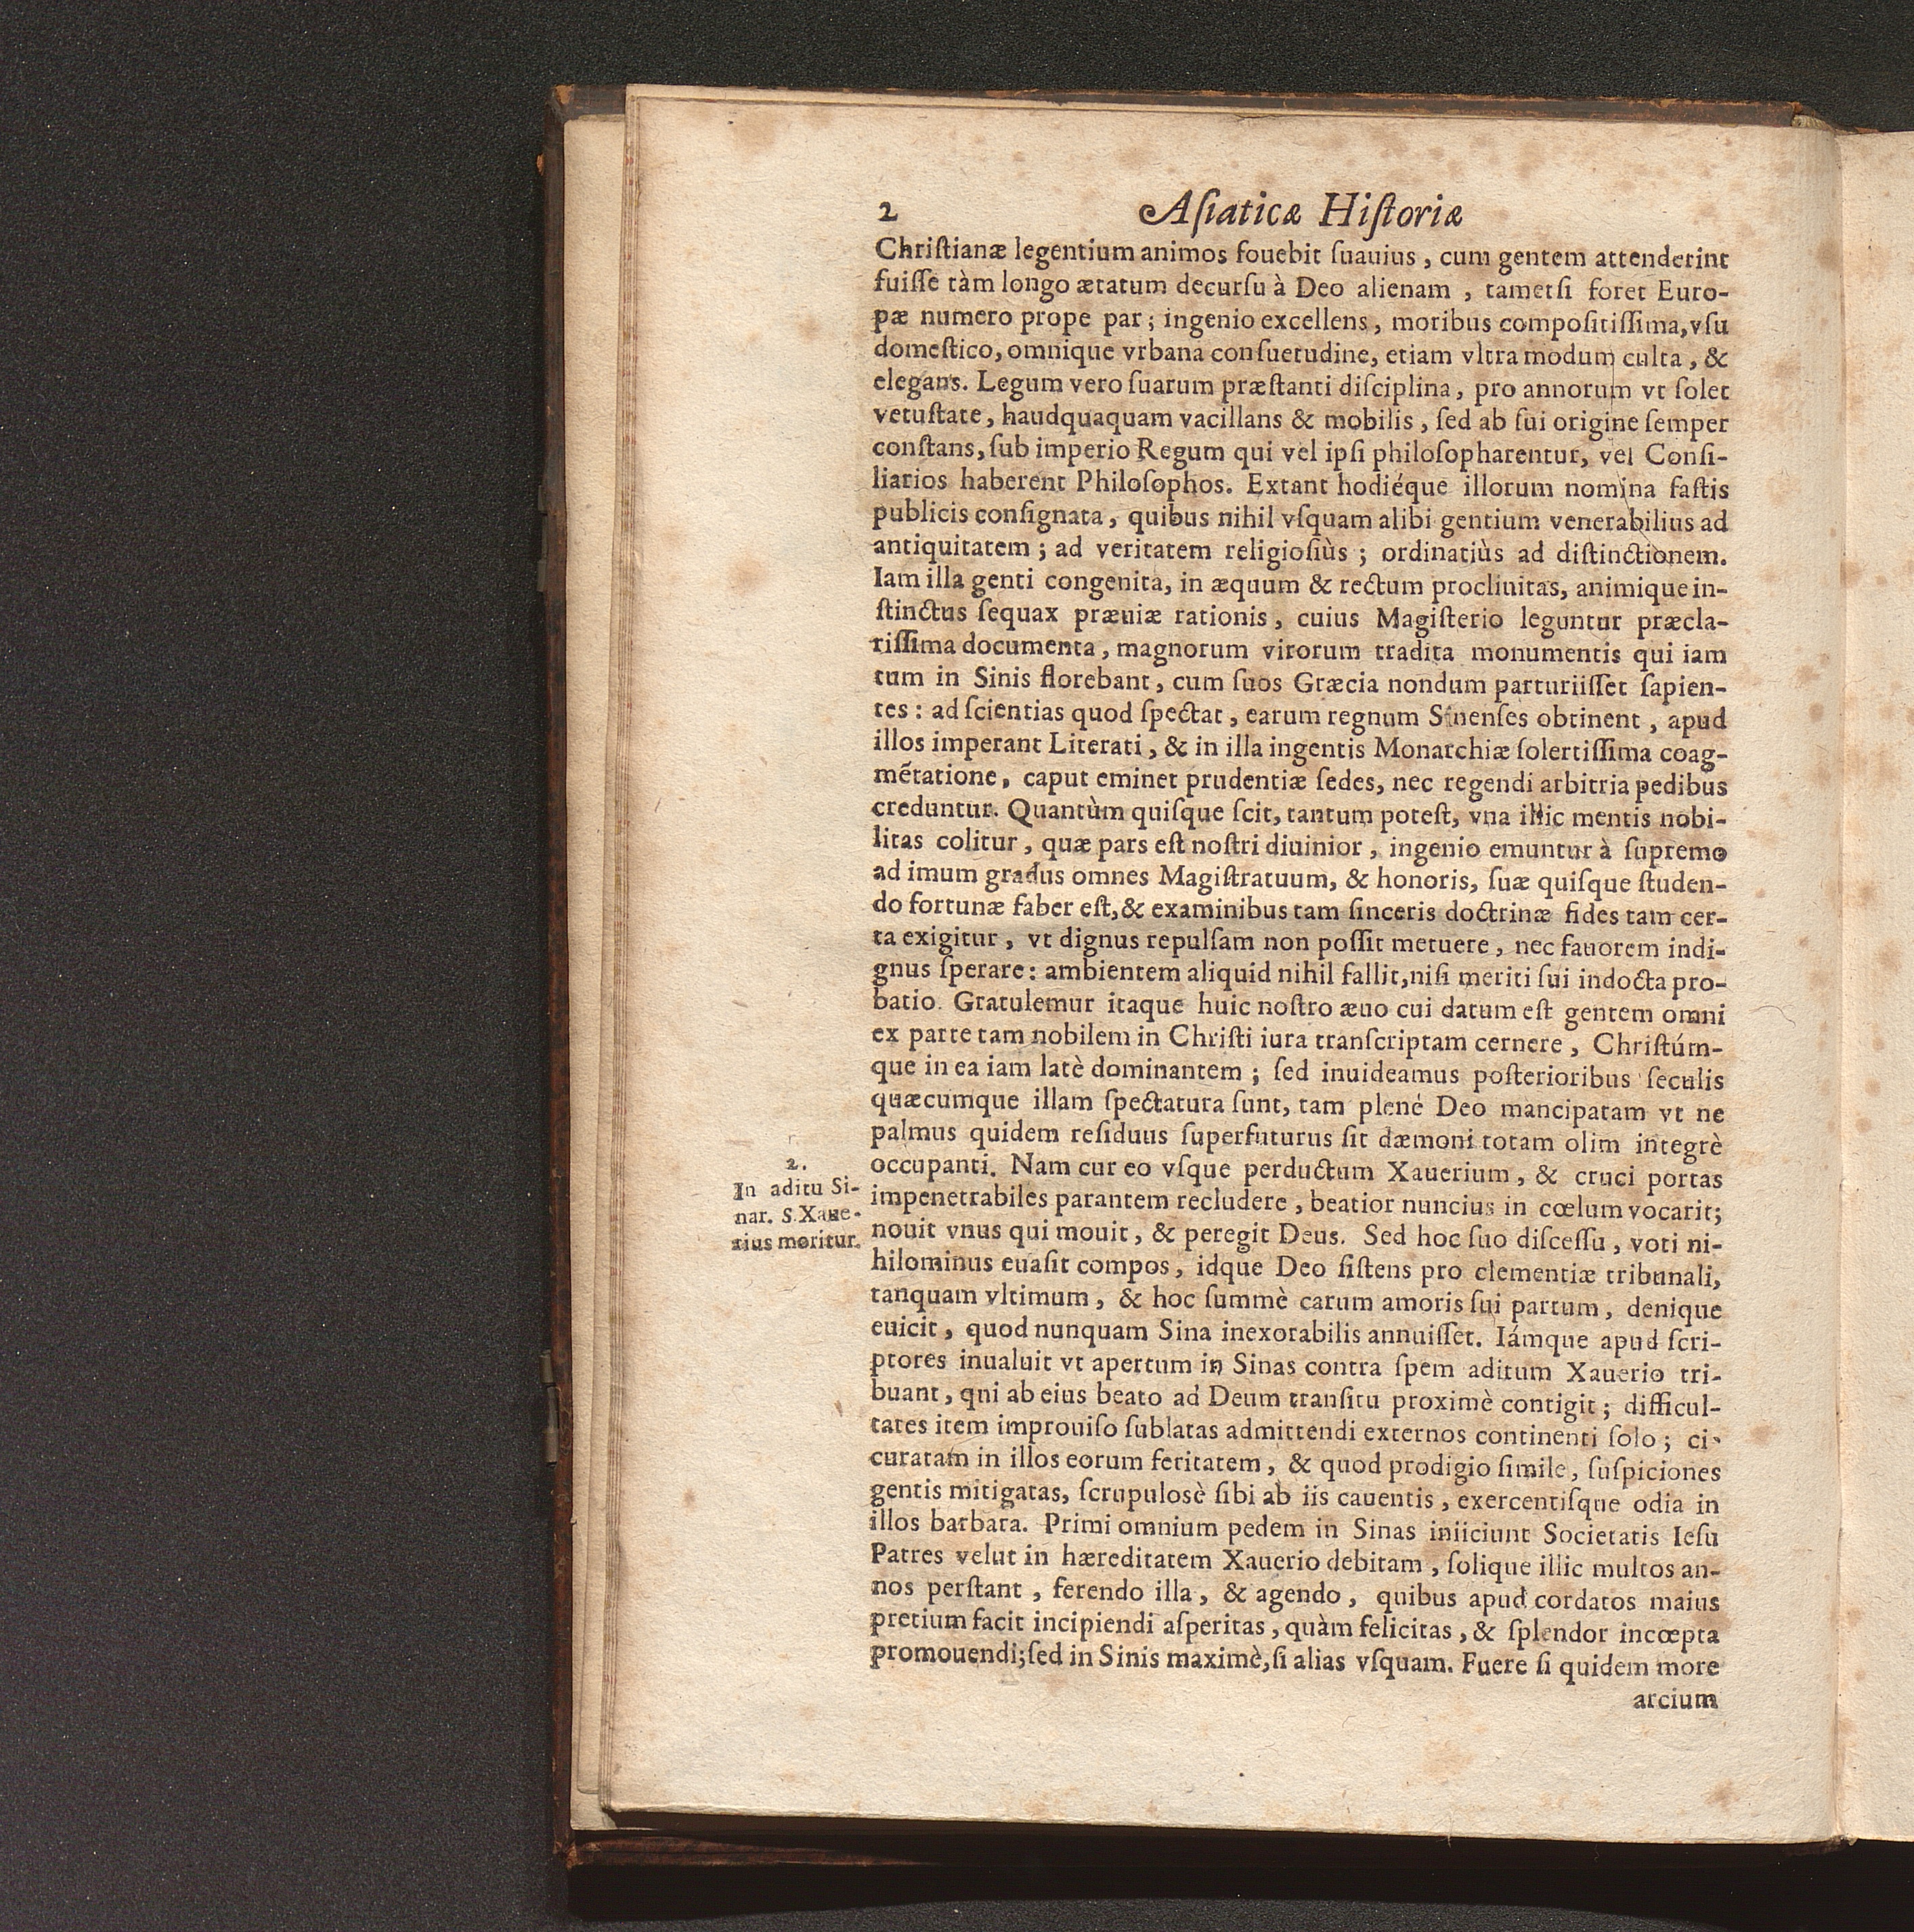 2 Aſiaticæ Hiſtoriæ
Chriſtianæ legentium animos fouebit ſuauius, cum gentem attenderint
fuiſſe tàm longo ætatum decurſu à Deo alienam, tametſi foret Euro-
pæ numero prope par; ingenio excellens, moribus compoſitiſſima, vſu
domeſtico, omnique vrbana conſuetudine, etiam vltra modum culta, &
elegans. Legum vero ſuarum præſtanti diſciplina, pro annorum vt ſolet
vetuſtate, haudquaquam vacillans & mobilis, ſed ab ſui origine ſemper
conſtans, ſub imperio Regum qui vel ipſi philoſopharentur, vel Conſi-
liarios haberent Philoſophos. Extant hodiéque illorum nomina faſtis
publicis conſignata, quibus nihil vſquam alibi gentium venerabilius ad
antiquitatem; ad veritatem religioſiùs; ordinatiùs ad diſtinctionem.
Iam illa genti congenita, in æquum & rectum procliuitas, animique in-
ſtinctus ſequax præuiæ rationis, cuius Magiſterio leguntur præcla-
riſſima documenta, magnorum virorum tradita monumentis qui iam
tum in Sinis florebant, cum ſuos Græcia nondum parturiiſſet ſapien-
tes: ad ſcientias quod ſpectat, earum regnum Sinenſes obtinent, apud
illos imperant Literati, & in illa ingentis Monarchiæ ſolertiſſima coag-
mẽtatione, caput eminet prudentiæ ſedes, nec regendi arbitria pedibus
creduntur. Quantùm quiſque ſcit, tantum poteſt, vna illic mentis nobi-
litas colitur, quæ pars eſt noſtri diuinior, ingenio emuntur à ſupremo
ad imum gradus omnes Magiſtratuum, & honoris, ſuæ quiſque ſtuden-
do fortunæ faber eſt, & examinibus tam ſinceris doctrinæ fides tam cer-
ta exigitur, vt dignus repulſam non poſſit metuere, nec fauorem indi-
gnus ſperare: ambientem aliquid nihil fallit, niſi meriti ſui indocta pro-
batio. Gratulemur itaque huic noſtro æuo cui datum eſt gentem omni
ex parte tam nobilem in Chriſti iura tranſcriptam cernere, Chriſtúm-
que in ea iam latè dominantem; ſed inuideamus poſterioribus ſeculis
quæcumque illam ſpectatura ſunt, tam plené Deo mancipatam vt ne
palmus quidem reſiduus ſuperfuturus ſit dæmoni totam olim integrè
occupanti. Nam cur eo vſque perductum Xauerium, & cruci portas
impenetrabiles parantem recludere, beatior nuncius in cœlum vocarit;
nouit vnus qui mouit, & peregit Deus. Sed hoc ſuo diſceſſu, voti ni-
hilominus euaſit compos, idque Deo ſiſtens pro clementiæ tribunali,
tanquam vltimum, & hoc ſummè carum amoris ſui partum, denique
euicit, quod nunquam Sina inexorabilis annuiſſet. Iámque apud ſcri-
ptores inualuit vt apertum in Sinas contra ſpem aditum Xauerio tri-
buant, qui ab eius beato ad Deum tranſitu proximè contigit; difficul-
tates item improuiſo ſublatas admittendi externos continenti ſolo; ci-
curatam in illos eorum feritatem, & quod prodigio ſimile, ſuſpiciones
gentis mitigatas, ſcrupulosè ſibi ab iis cauentis, exercentiſque odia in
illos barbara. Primi omnium pedem in Sinas iniiciunt Societatis Ieſu
Patres velut in hæreditatem Xauerio debitam, ſolique illic multos an-
nos perſtant, ferendo illa, & agendo, quibus apud cordatos maius
pretium facit incipiendi aſperitas, quàm felicitas, & ſplendor incœpta
promouendi; ſed in Sinis maximè, ſi alias vſquam. Fuere ſi quidem more
arcium
2.
In aditu Si-
nar. S. Xaue-
rius moritur.